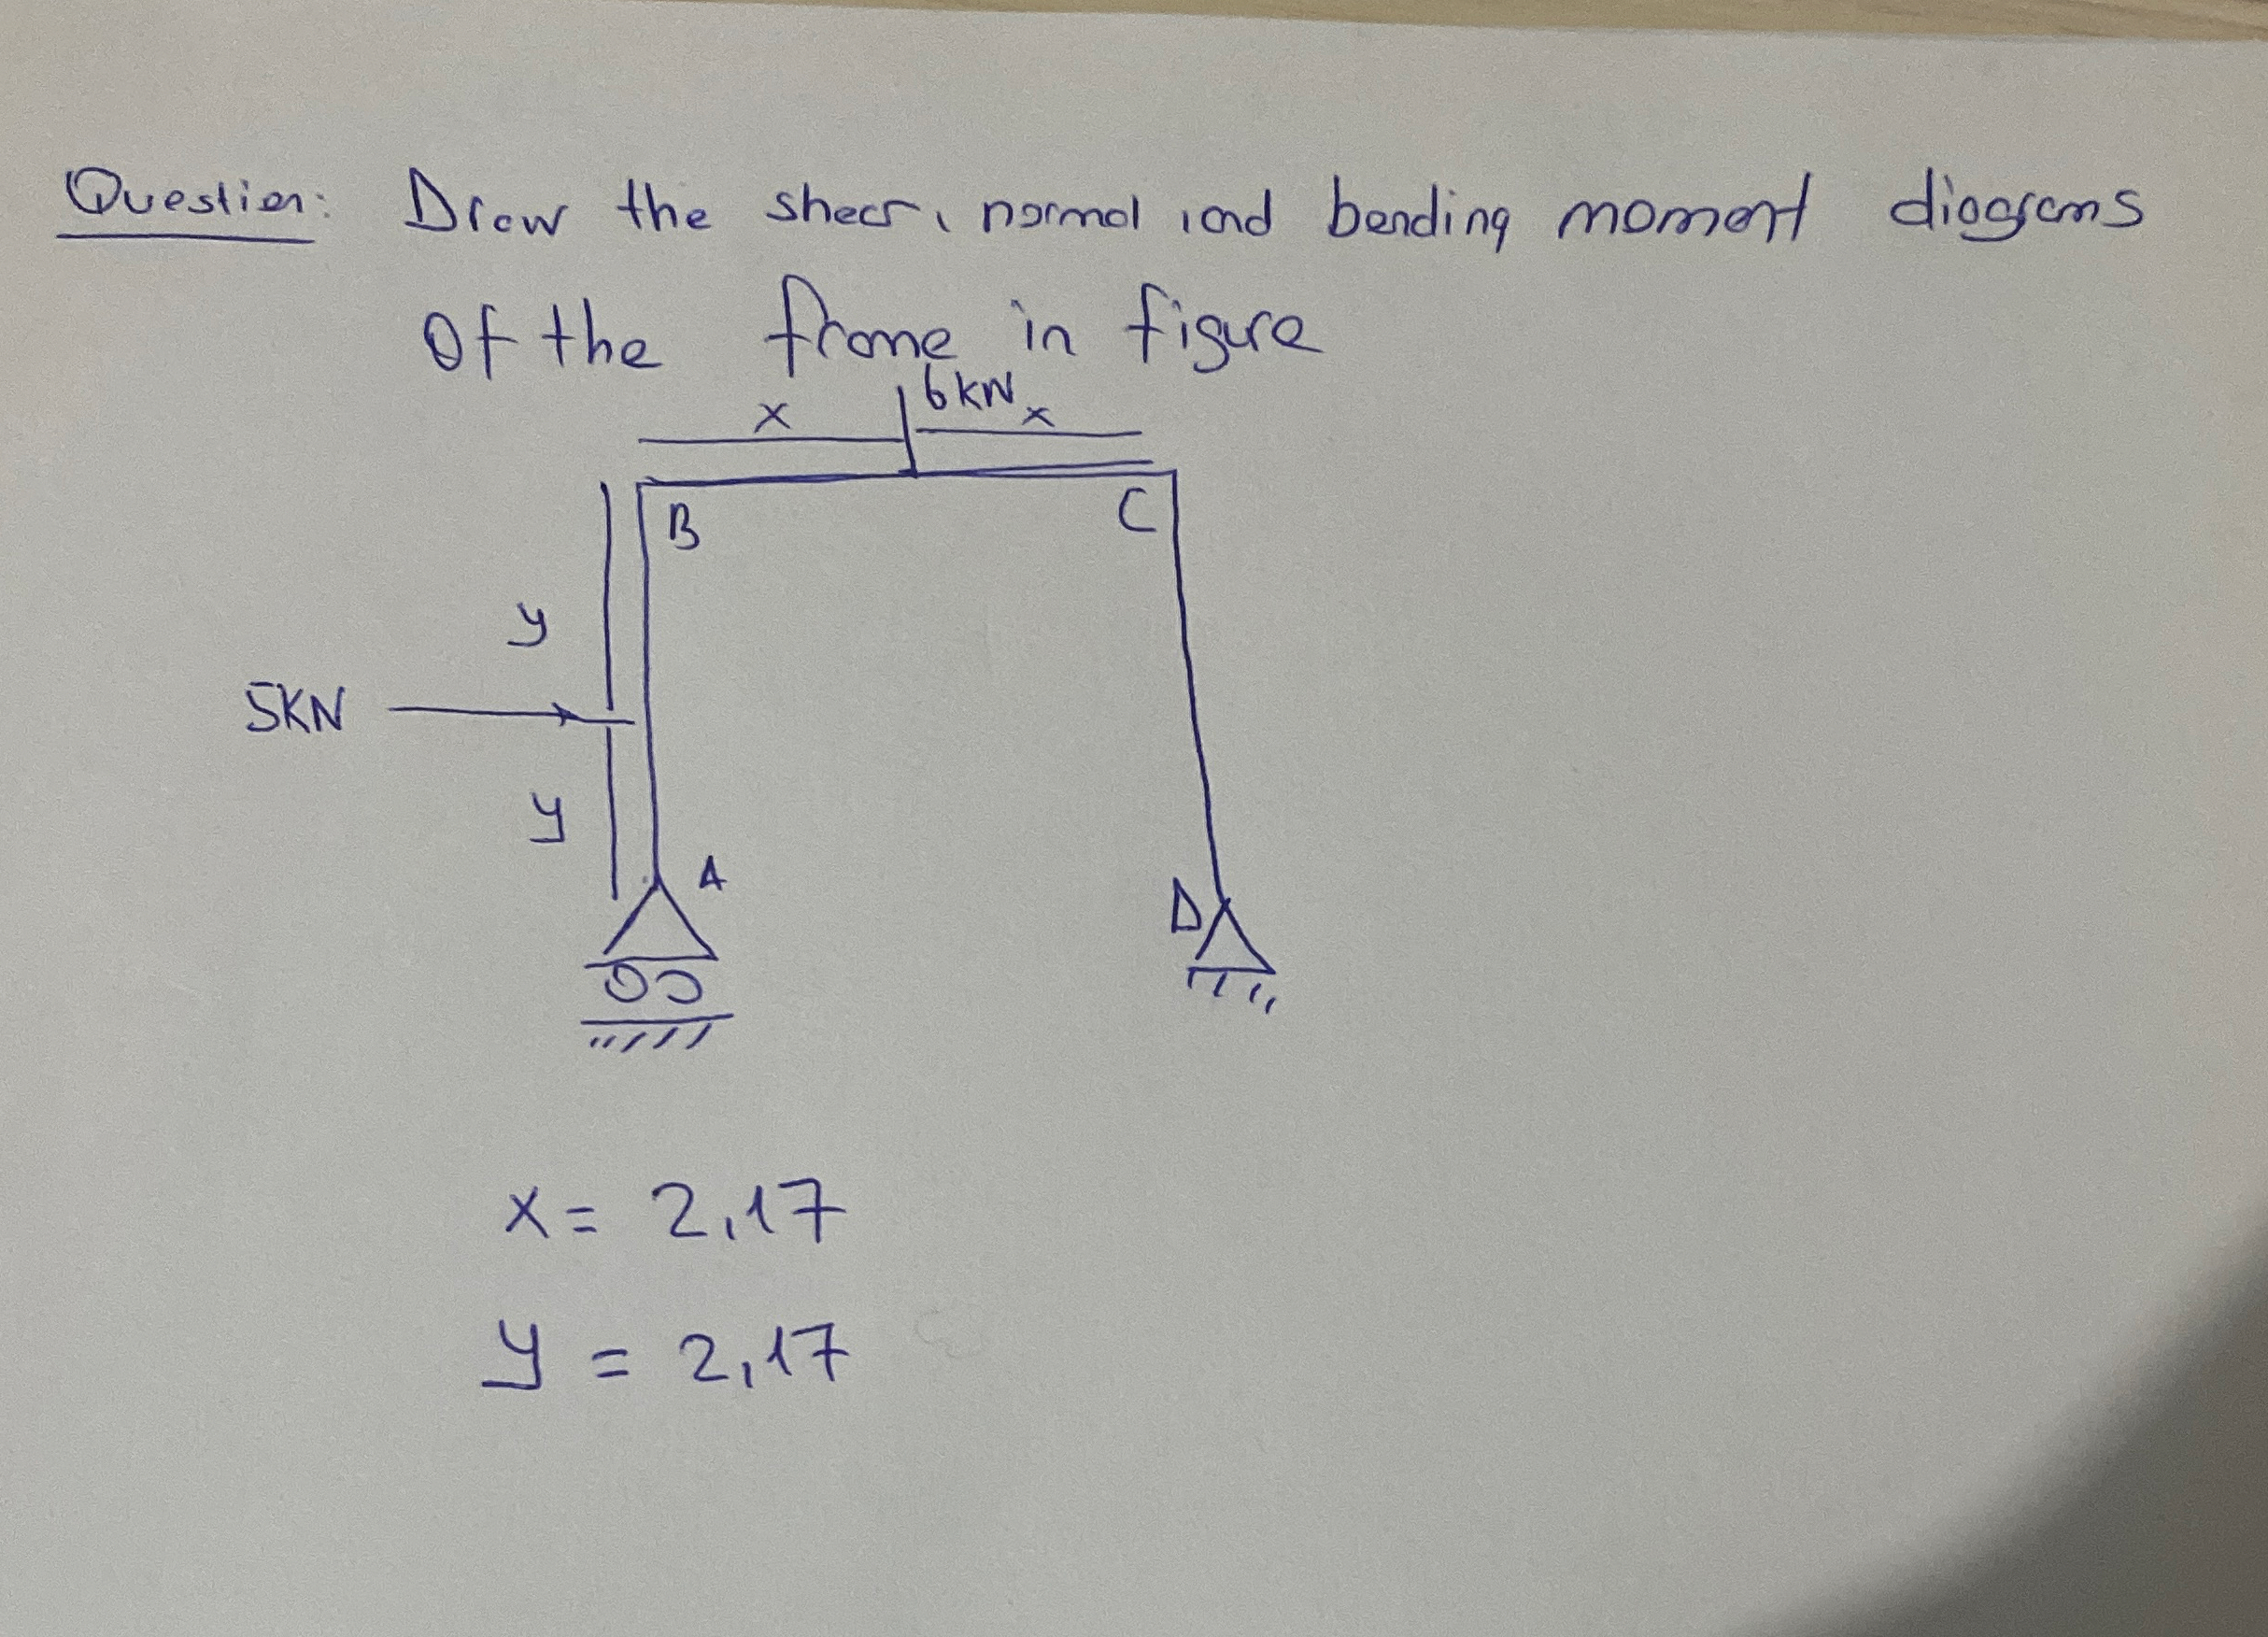 Question: Draw the shear, normal, and bending moment diagrams
Of the frame in figure
x 6KN x
B C
y
5KN
y
A
D
x = 2,17
y = 2,17